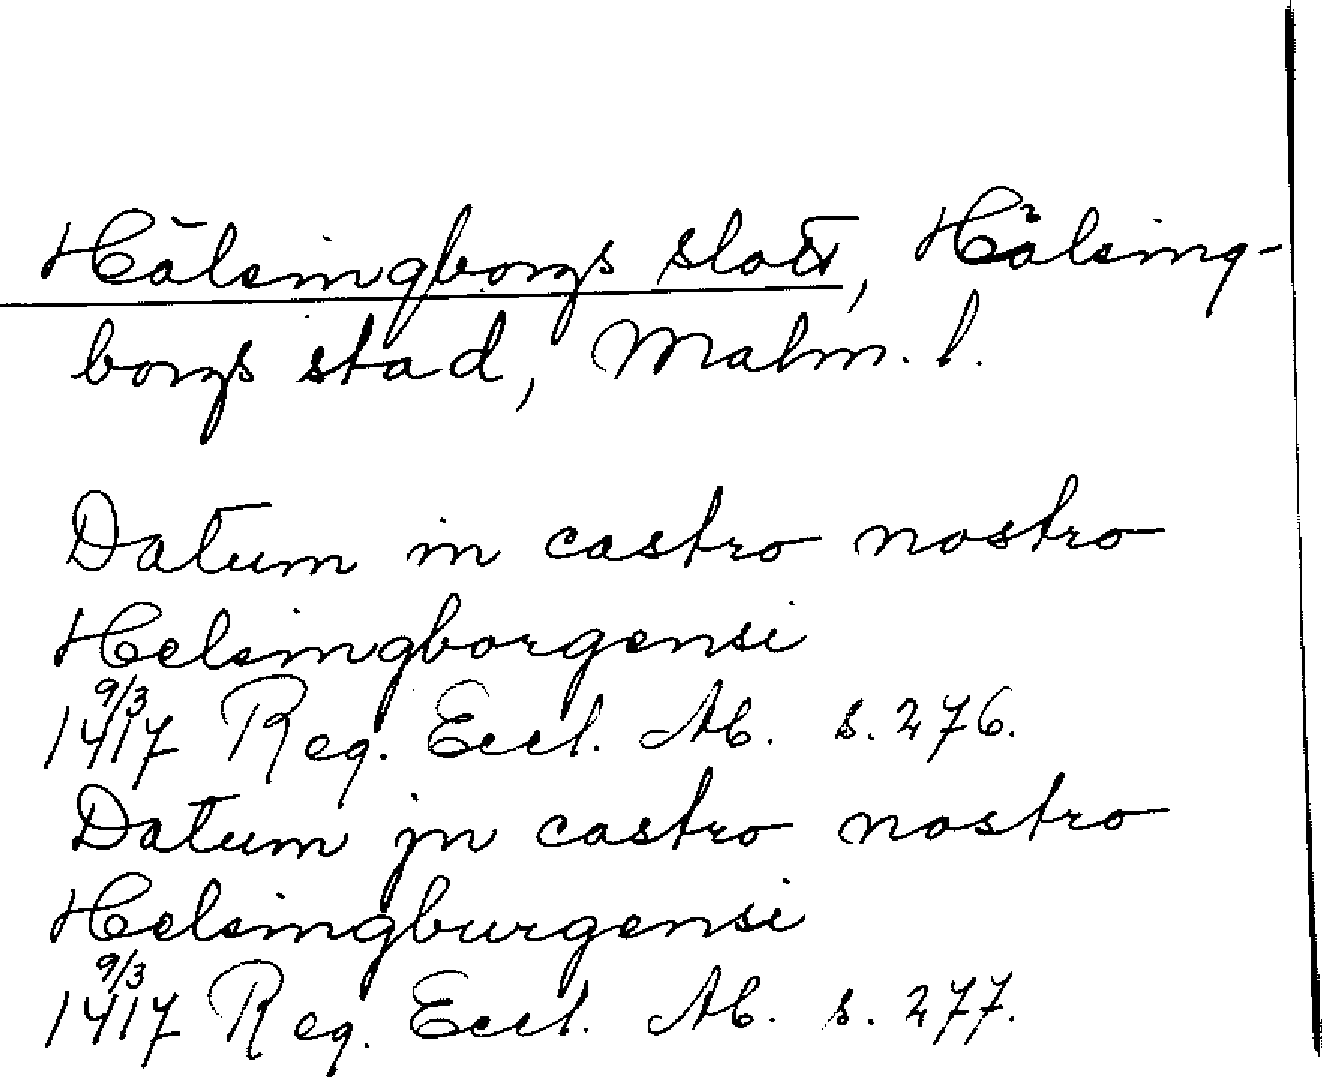 Hälsingborgs slott, Hälsing-
borgs stad, Malm. l.
Datum in castro nostro
Helsingborgensi
9/3
1417 Reg. Eccl. Ab. s. 276.
Datum jn castro nostro
Helsingburgensi
9/3
1417 Reg. Eccl. Ab. s. 277.